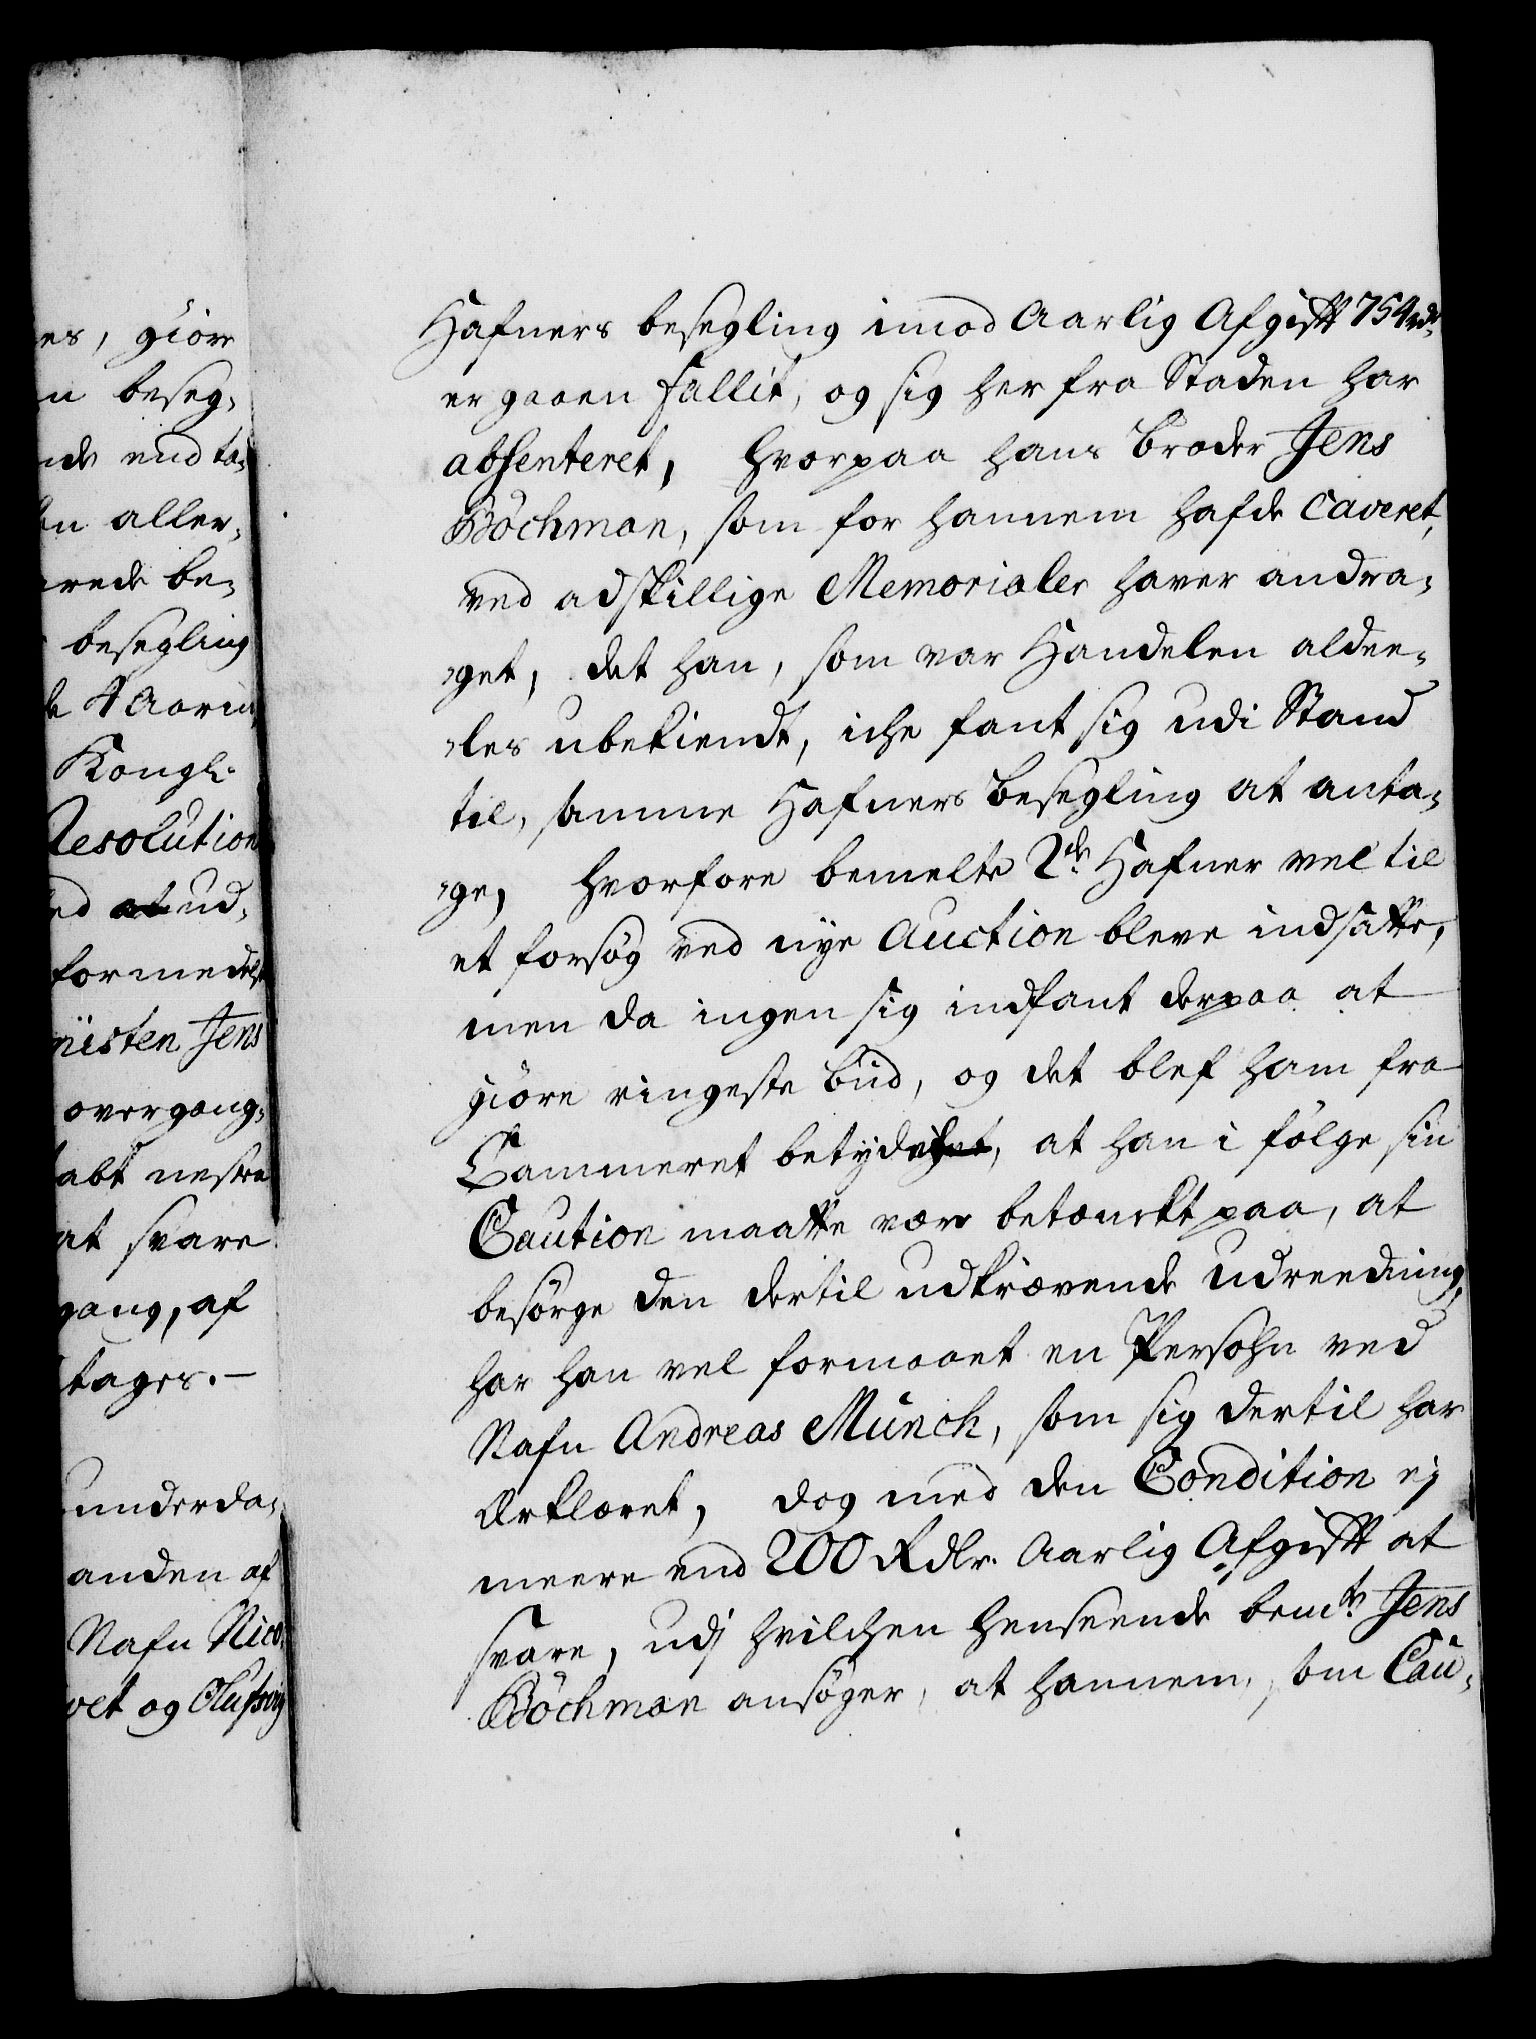 es, giöre
n beseg,
nde end ta,
en aller,
erede be,
besegling
de 4 Aarin,
Kongl:
Resolution
ed at ud,
formedelst
niisten Jens
overgang,
tabt neste
at svare
gang, af
tages.-
underda,
anden af
Nafn Nico,
vet og Olufsvig
Hafners besegling imod Aarlig Afgifft 754 rdr
er gaaen fallit, og sig her fra Staden har
absenteret, hvorpaa hans broder Jens
Böchman, som for hannem hafde caveret,
ved adskillige Memorialer haver andra,
,get, det han, som var Handelen aldee,
,les ubekiendt, iche fant sig udi Stand
til, samme Hafners besegling at anta,
,ge, hvorfore bemelte 2de Hafner vel til
et forsög ved nye Auction bleve indsatte,
men da ingen sig indfant derpaa at
giöre ringeste biid, og det blef ham fra
Cammeret betydet, at han i fölge sin
Caution maatte være betænckt paa, at
besörge den dertil udkrævende udreedning,
har han vel formaaet en Persohn ved
Nafn Andreas Münch, som sig dertil har
Erklæret, dog med den Condition ej
meere end 200 Rdlr. Aarlig Afgifft at
svare, udj hvilchen henseende bemte Jens
Böchman ansöger, at hannem, som Cau,